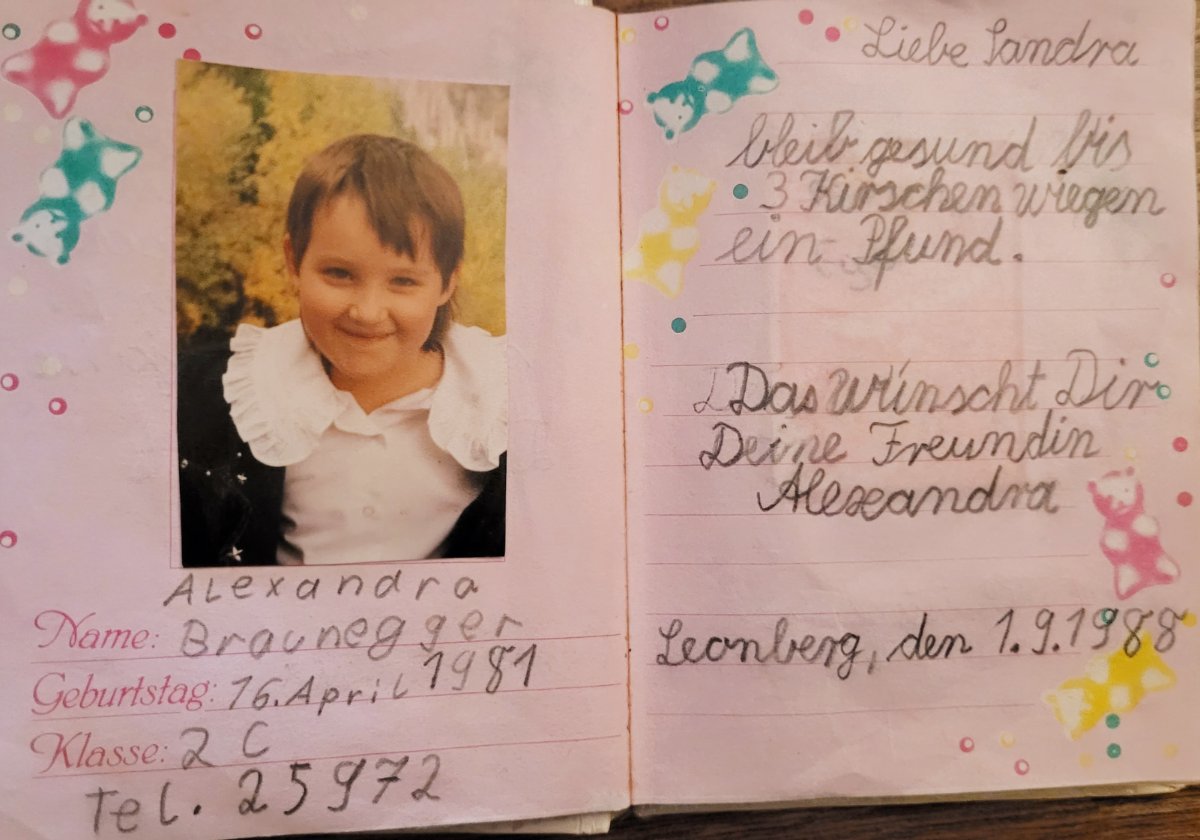 Alexandra
Name: Braunegger
Geburtstag: 16. April 1981
Klasse: 2 C
Tel. 25972
Liebe Sandra
bleib gesund bis
3 Kirschen wiegen
ein Pfund.
Das wünscht Dir
Deine Freundin
Alexandra
Leonberg, den 1.9.1988